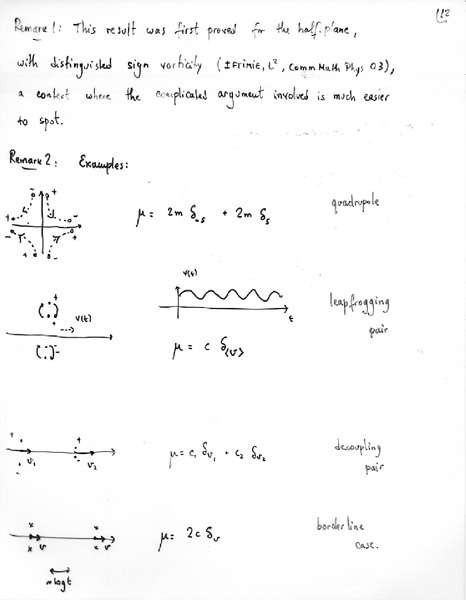 12
Remark 1: This result was first proved for the half-plane,
with distinguished sign vorticity (±Iftimie, L², Comm Math Phys 03),
a context where the complicated argument involved is much easier
to spot.
Remark 2: Examples:
μ = 2m δ₋ₛ + 2m δₛ
quadrupole
v(t)
t
+
v(t)
-
μ = c δ⟨v⟩
leapfrogging
pair
+
-
v₁
+
-
v₂
μ = c₁ δv₁ + c₂ δv₂
decoupling
pair
x
x
v
x
x
v
~logt
μ = 2c δv
borderline
case.